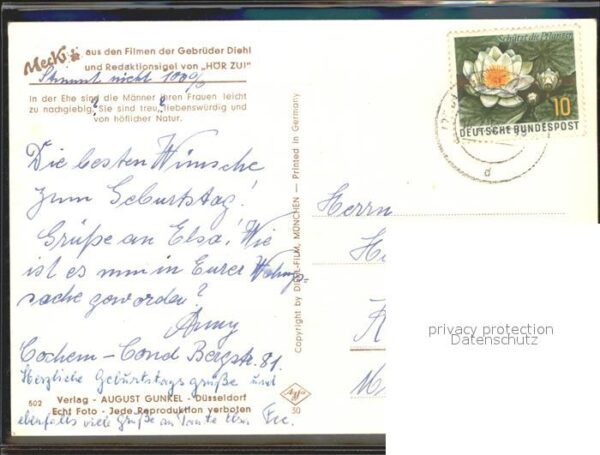 Mecki aus den Filmen der Gebrüder Diehl
und Redaktionsigel von „HÖR ZU!"
Stimmt nicht 100%
In der Ehe sind die Männer ihren Frauen leicht
zu nachgiebig. Sie sind treu, liebenswürdig und
von höflicher Natur.
Die besten Wünsche
zum Geburtstag!
Grüße an Elsa! Wie
ist es nun in Eurer Wohnungs-
sache geworden?
Cochem-Cond Bergstr. 81.
Herzliche Geburtstagsgrüße und
ebenfalls viele Grüße an Tante Elsa
502
Verlag - AUGUST GUNKEL - Düsseldorf
Echt Foto - Jede Reproduktion verboten
Copyright by DIEHL-FILM, MÜNCHEN — Printed in Germany
Agfa
30
Schützt die Pflanzen
10
DEUTSCHE BUNDESPOST
d
Herrn
privacy protection
Datenschutz